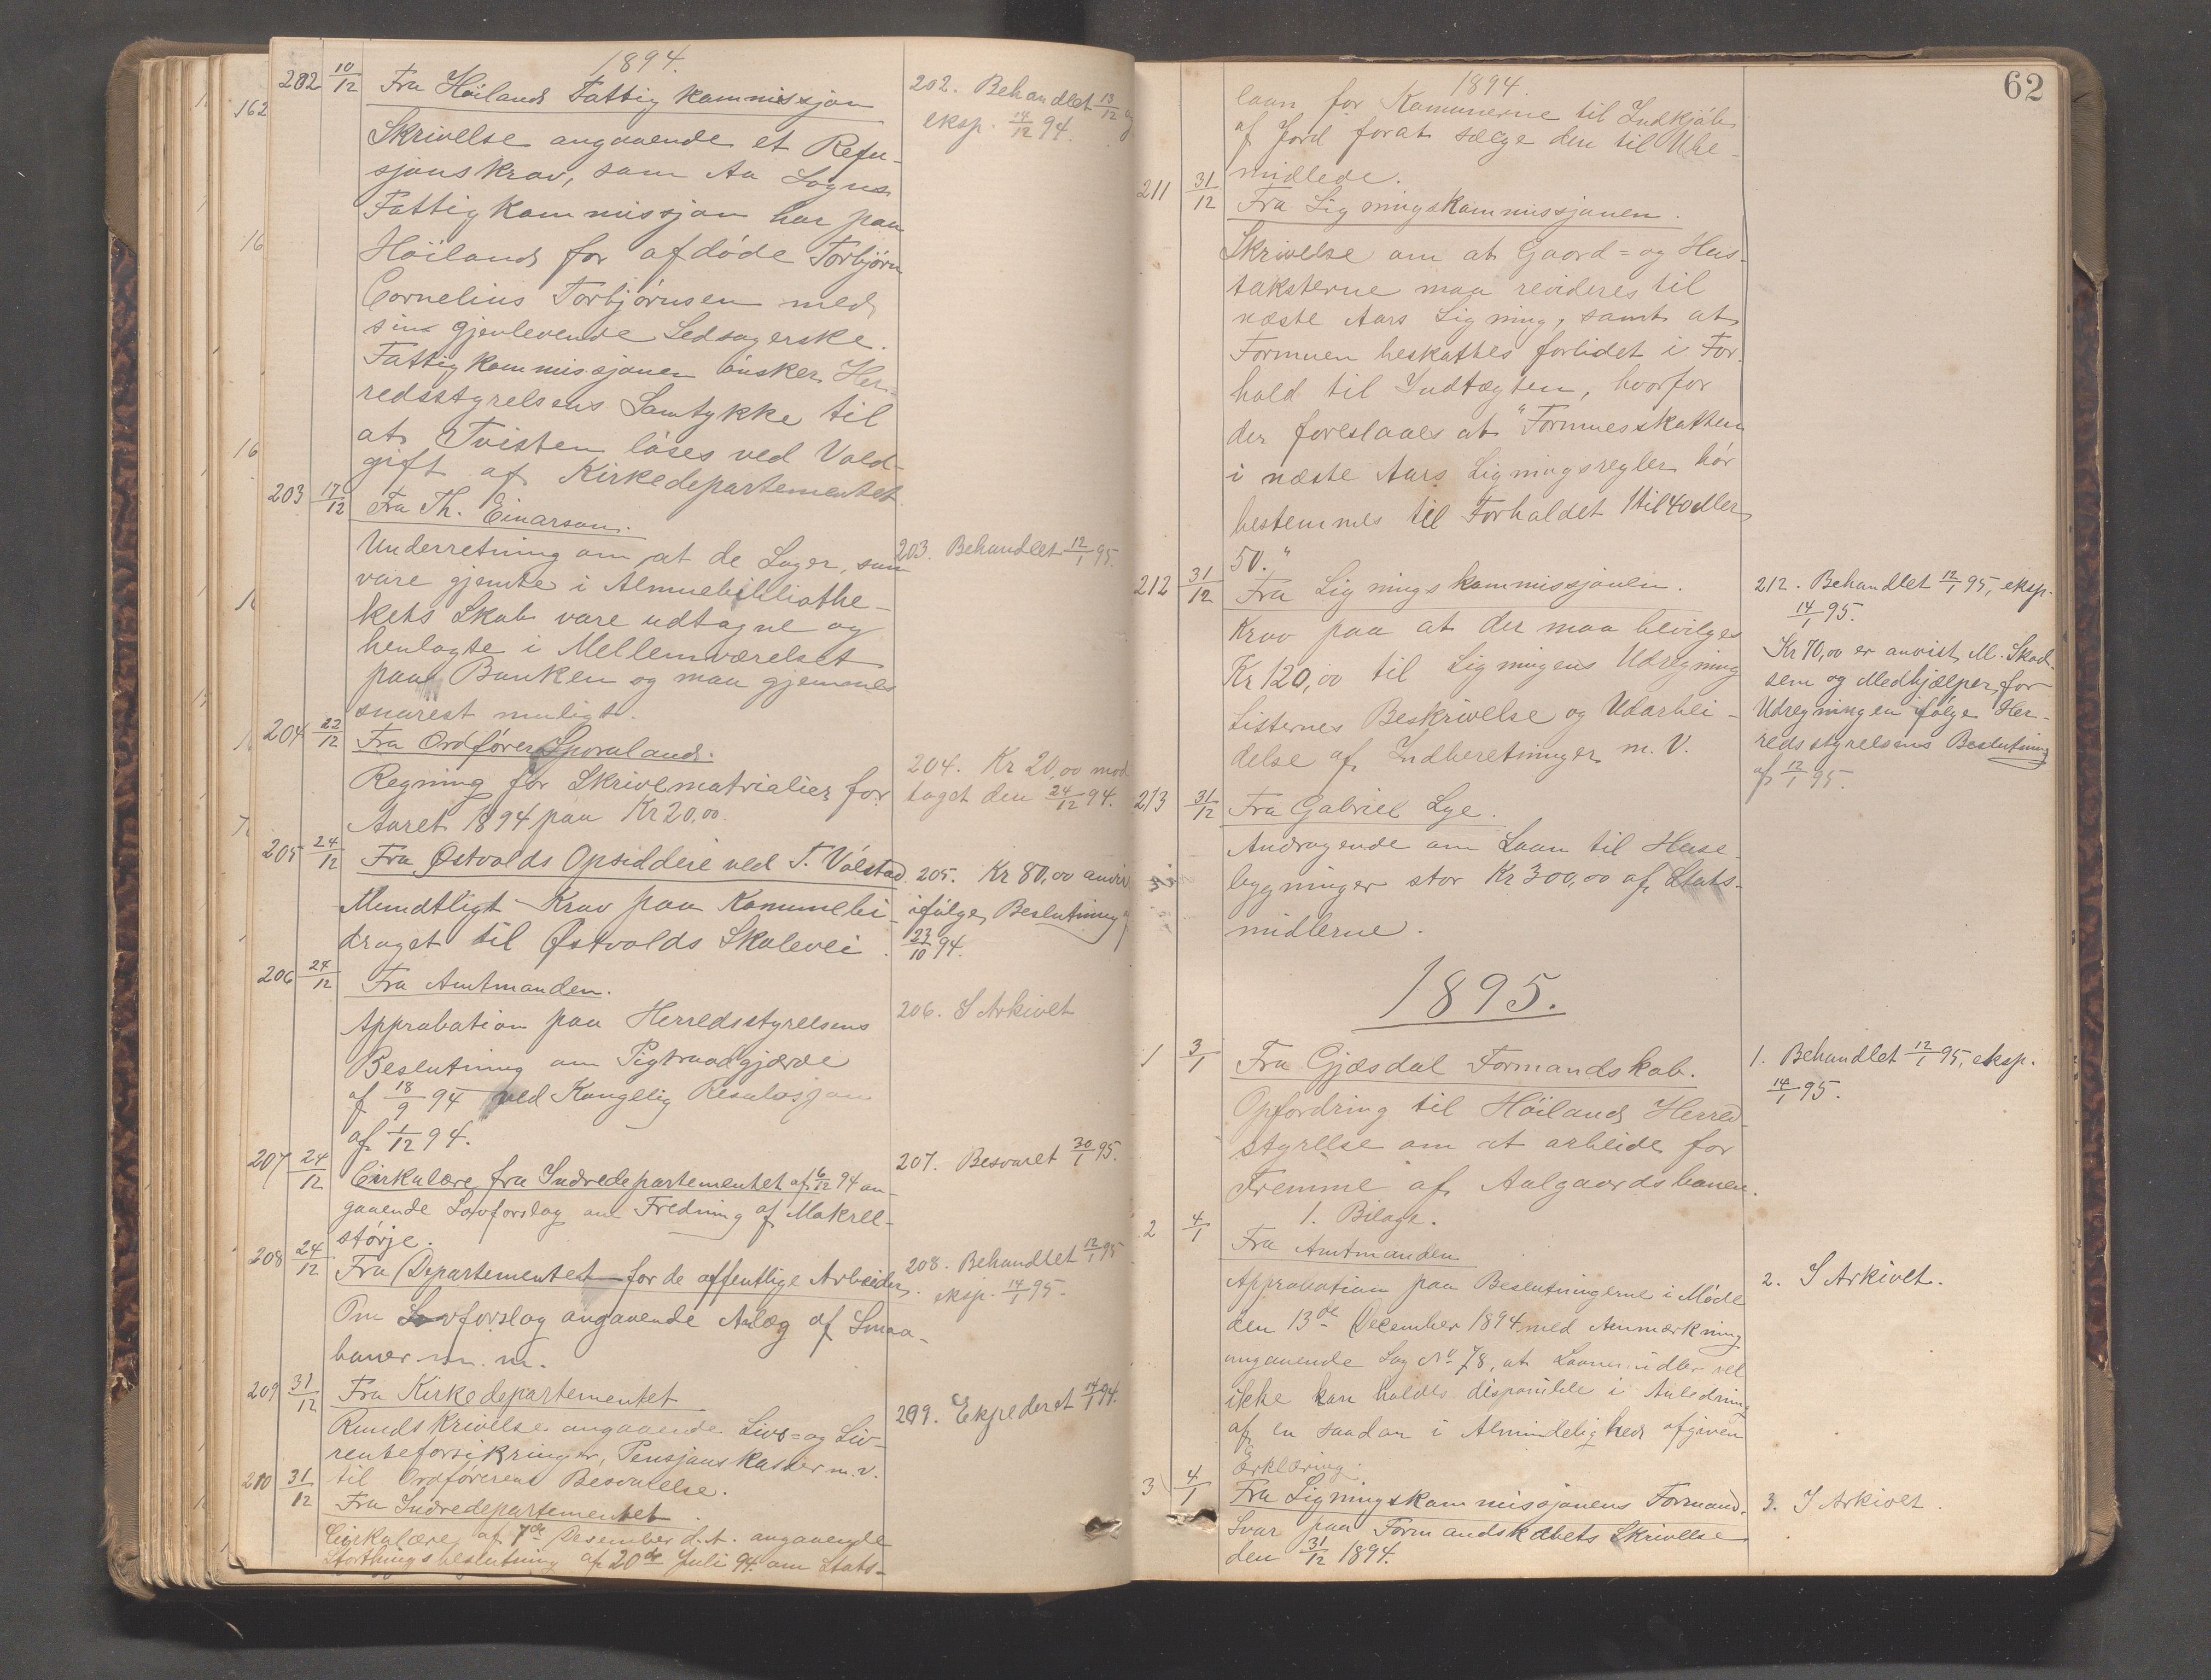 1894.
202 10/12 Fra Höilands Fattigkommissjon
Skrivelse angaaende et Refu-
sjonskrav, som Aa Sogns
Fattigkommissjon har paa
Höiland for afdöde Torbjörn
Cornelius Torbjörnsen med
sin gjenlevende Ledsagerske.
Fattigkommissjonen önsker Her-
redsstyrelsens Samtykke til
at Tvisten löses ved Vold-
gift af Kirkedepartementet
202. Behandlet 13/12 og
eksp. 14/12 94.
203 17/12 Fra Th. Einarson.
Underretning om at de Sager, som
vare gjemte i Almuebibliothe-
kets Skab vare udtagne og
henlagte i Mellemværelset
paa Banken og maa gjemmes
snarest muligt.
203. Behandlet 12/1 95.
204 22/12 Fra Ordförer Sporaland.
Regning for Skrivematrialier for
Aaret 1894 paa Kr 20,00.
204. Kr 20,00 mod
taget den 24/12 94.
205 24/12 Fra Østvolds Opsiddere ved T.Válstad
Mundtligt Krav paa Kommunebi-
draget til Østvolds Skolevei
205. Kr 80,00 anvist
ifölge Beslutning af
23/10 94.
206 24/12 Fra Amtmanden.
Approbation paa Herredsstyrelsens
Beslutning om Pigtraadgjærde
af 18/9 94 ved Kongelig Resolusjon
af 1/12 94.
206. I Arkivet
207 24/12 Cirkulære fra Indredepartementet af 6/12 94 an-
gaaende Lovforslag om Fredning af Makrel-
störje.
207. Besvaret 30/1 95.
208 24/12 Fra Departementet for de offentlige Arbeider.
Om Lovforslag angaaende Anlæg af Smaa-
baner m. m.
208. Behandlet 12/1 95
eksp. 14/1 95.
209 31/12 Fra Kirkedepartementet
Rundskrivelse angaaende Livs= og Liv-
renteforsikringer, Pensjonskasser m. v.
til Ordförerens Besvarelse.
209. Ekpederet 14/1 94.
210 31/12 Fra Indredepartementet
Cirkulære af 7de Desember d. A. angaaende
Storthingsbeslutning af 20de Juli 94 om Stats-
62
1894.
laan for Komunerne til Indkjöb
af Jord forat sælge den til Ube-
midlede.
211 31/12 Fra Ligningskommissjonen.
Skrivelse om at Gaard= og Hus-
taksterne maa revideres til
næste Aars Ligning, samt at
Formuen beskattes forlidet i For-
hold til Indtægten, hvorfor
der foreslaaes at "Formuesskatten
i næste Aars Ligningsregler bör
bestemmes til Forholdet 1 til 40 eller
50."
212 31/12 Fra Ligningskommissjonen.
Krav paa at der maa bevilges
Kr 120,00 til Ligningens Udregning
Listernes Beskrivelse og Udarbei-
delse af Indberetninger m. V.
212. Behandlet 12/1 95, eksp.
14/1 95.
Kr 70,00 er anvist M. Skad-
sem og Medhjælper for
Udregningen ifölge Her-
redsstyrelsens Beslutning
af 12/1 95.
213 31/12 Fra Gabriel Lye.
Andragende om Laan til Huse-
bygninger stor Kr 300,00 af Stats-
midlerne.
1895.
1 3/1 Fra Gjæsdal Formandskab.
Opfordring til Höilands Herred-
styrelse om at arbeide for
Fremme af Aalgaardsbanen.
1. Bilag.
1. Behandlet 12/1 95, eksp.
14/1 95.
2 4/1 Fra Amtmanden
Approbation paa Beslutningerne i Möde
den 13de December 1894 med Anmærkning
angaaende Sag No 78, at Laanemidler vel
ikke kan holdes disponible i Anledning
af en saadan i Almindelighed afgiven
Erklæring.
2. I Arkivet.
3 4/1 Fra Ligningskommissjonens Formand.
Svar paa Formandskabets Skrivelse
den 31/12 1894.
3. I Arkivet.